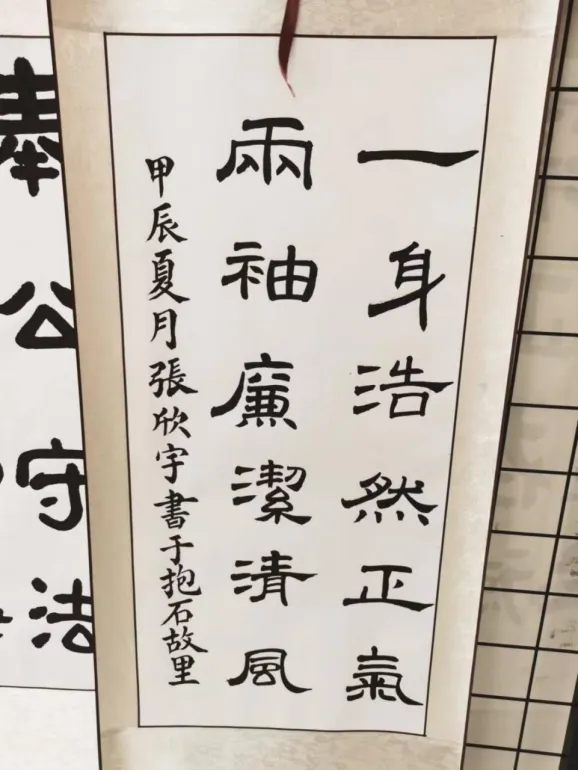 一身浩然正氣
兩袖廉潔清風
甲辰夏月張欣宇書于抱石故里
奉公守法